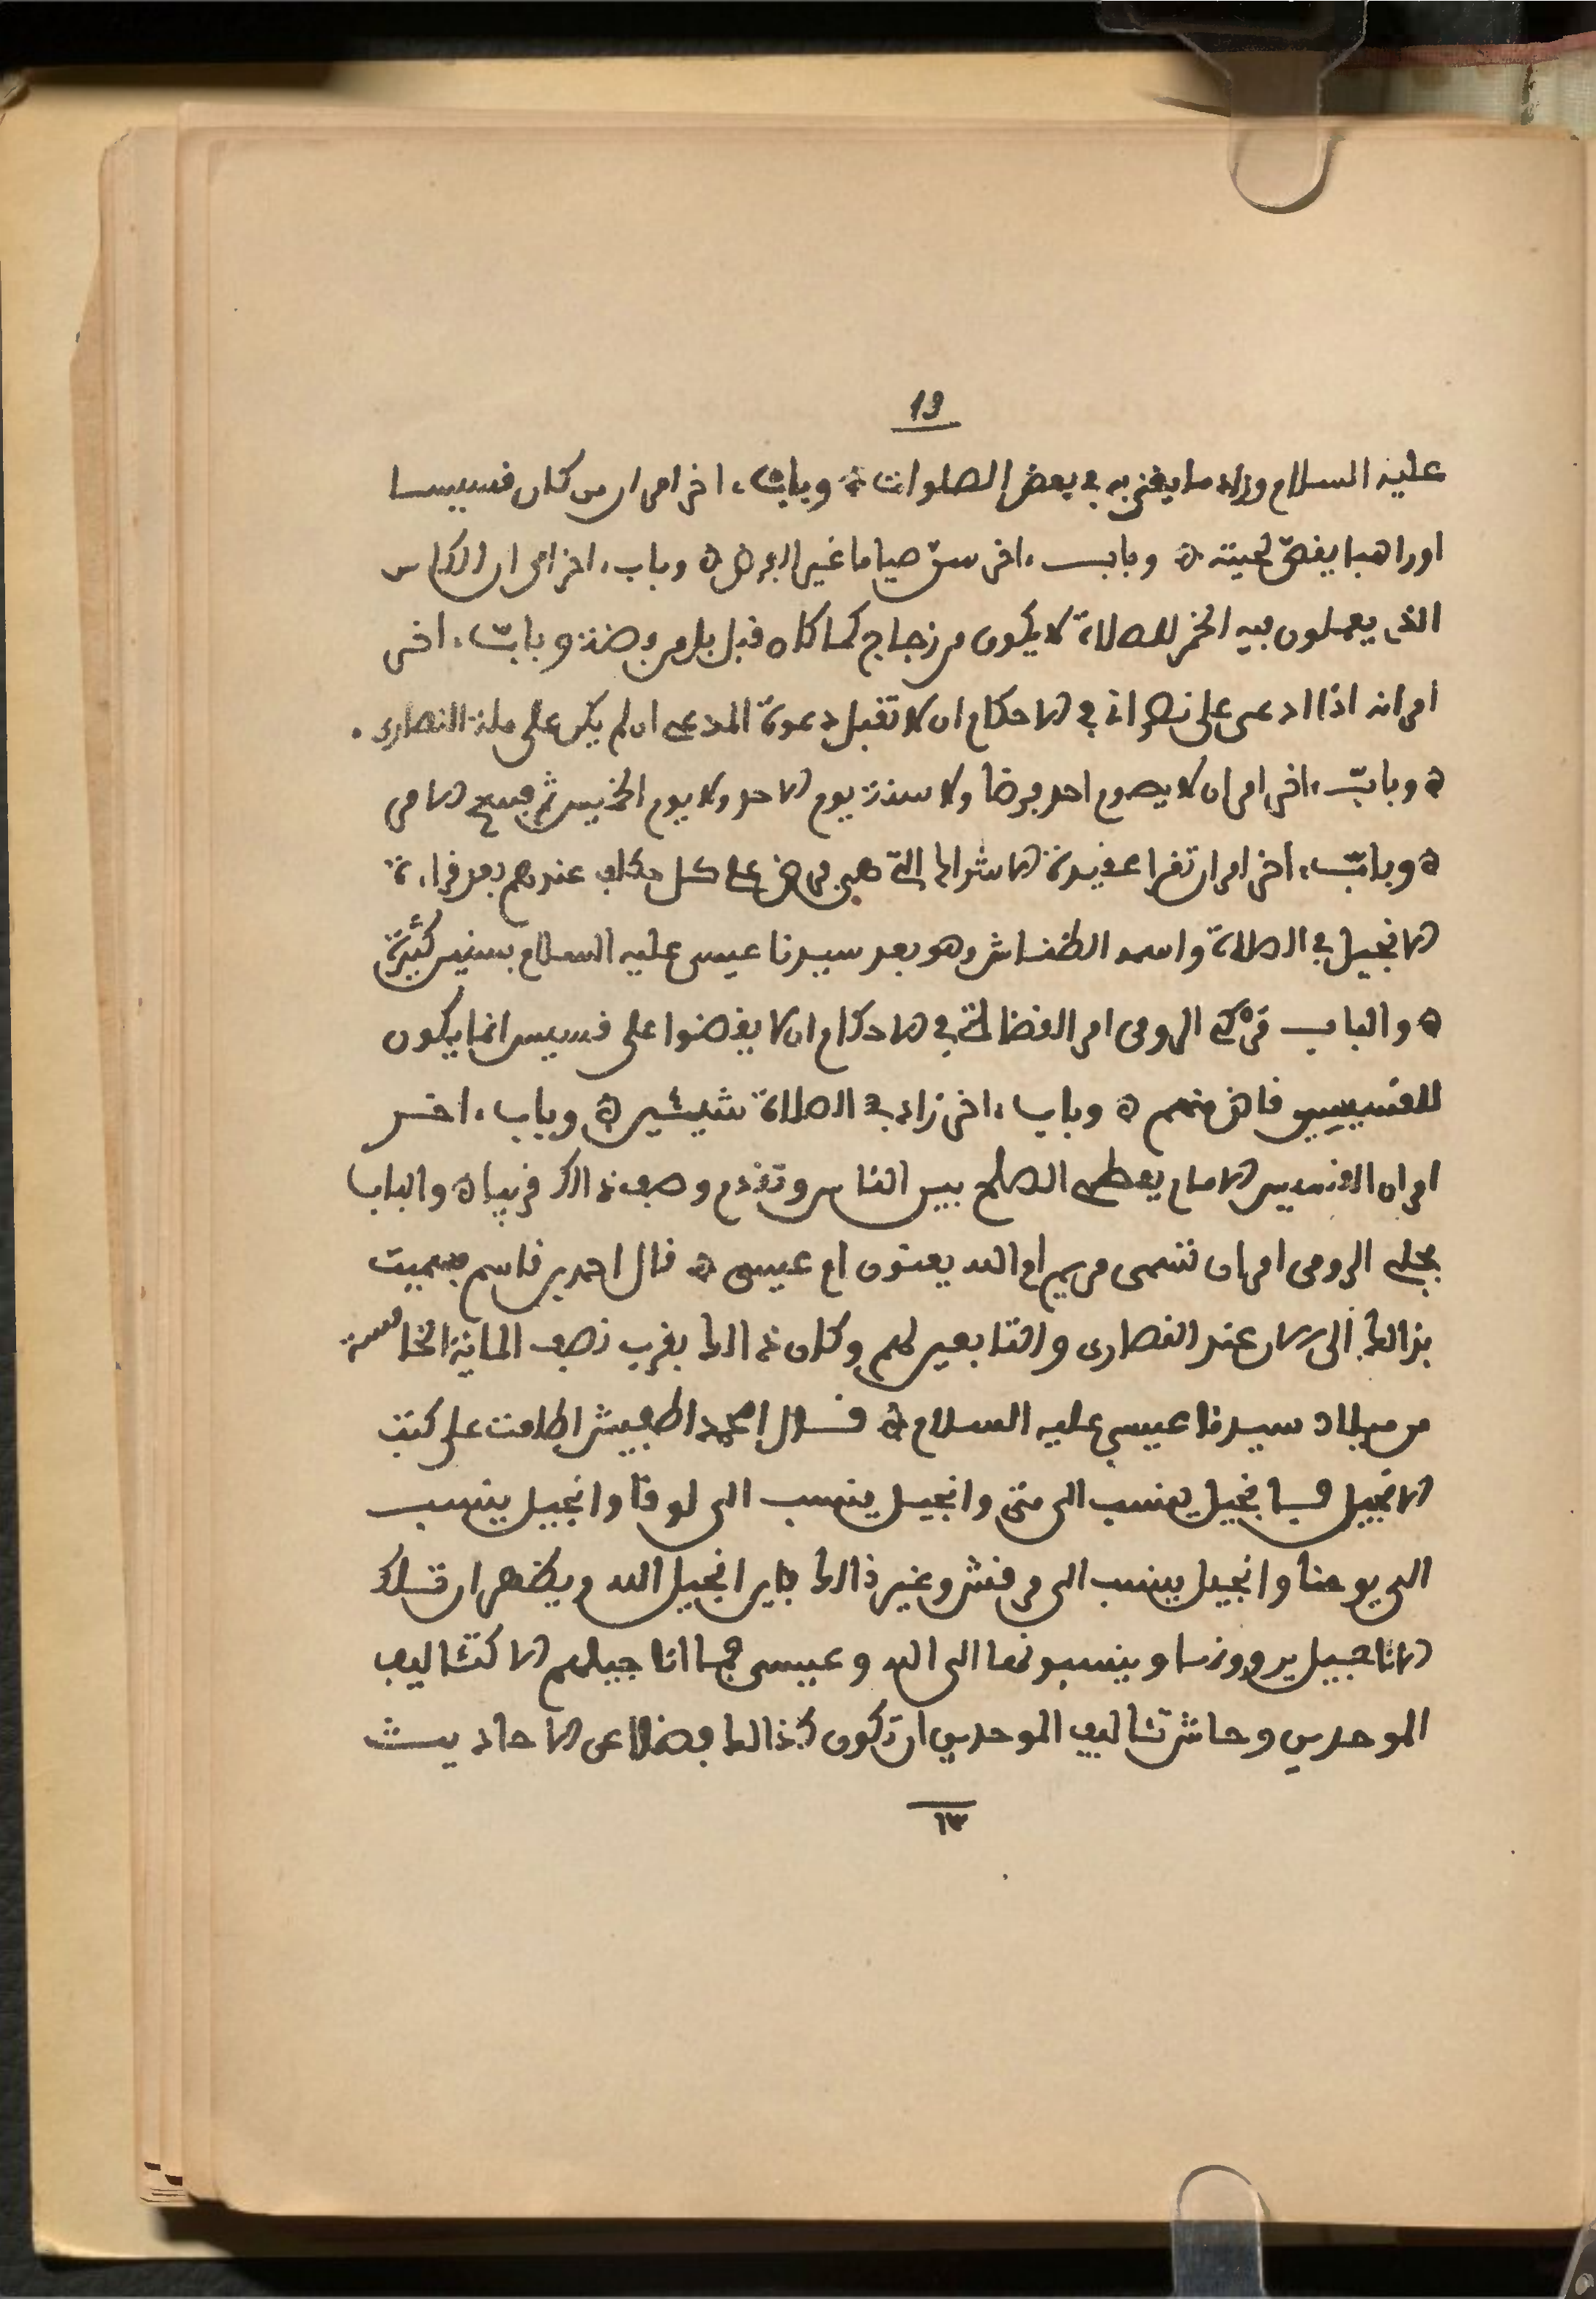 19
عليه السلام وزاد ما يغنى به في بعض الصلوات ه وباب ، اخر امر ان من كان قسيسا
او راهبا يقص لحيته ه وباب ، اخر سن صياما غير الفرض ه وباب ، اخر امر ان الكاس
الذي يعملون فيه الخمر للصلاة لا يكون من زجاج كما كان قبل بل من فضة وباب ، اخر
امر انه اذا ادعى على نصراني في الاحكام ان لا تقبل دعوة المدعي ان لم يكن على ملة النصارى .
ه وباب ، اخر امر ان لا يصوم احد فرضا ولا سنة يوم الاحد ولا يوم الخميس ثم فسخ الامر
ه وباب ، اخر امر ان تقرا عقيدة الاشراك التي هي فرض على كل مكلف عندهم بعد قراءة
الانجيل في الصلاة واسمه الطنناش وهو بعد سيدنا عيسى عليه السلام بسنين كثيرة
ه والباب الرومي امر القضاة في الاحكام ان لا يقضوا على قسيس انما يكون
للقسيسين قاض منهم ه وباب ، اخر زاد في الصلاة شيئين ه وباب ، اخر
امر ان القسيس الامام يعطي الصلح بين الناس وتقدم وصف ذالك قريبا ه والباب
بجلي الرومي امر ان تسمى مريم ام الله يعنون ام عيسى ه قال احمد بن قاسم فسميت
بذالك الى الان عند النصارى والتابعين لهم وكان ذالك بقرب نصف المائة الخامسة
من ميلاد سيدنا عيسى عليه السلام ه قال احمد اطلعت على كتب
الانجيل فيها انجيل ينسب الى متى وانجيل ينسب الى لوقا وانجيل ينسب
الى يوحنا وانجيل ينسب الى مرقش وغير ذالك فاين انجيل الله ويظهر ان تلك
الاناجيل يروونها وينسبونها الى الله وعيسى فما اناجيلهم الا كتئاليف
الموحدين وحاش تئاليف الموحدين ان تكون كذالك فضلا عن الاحاديث
١٣